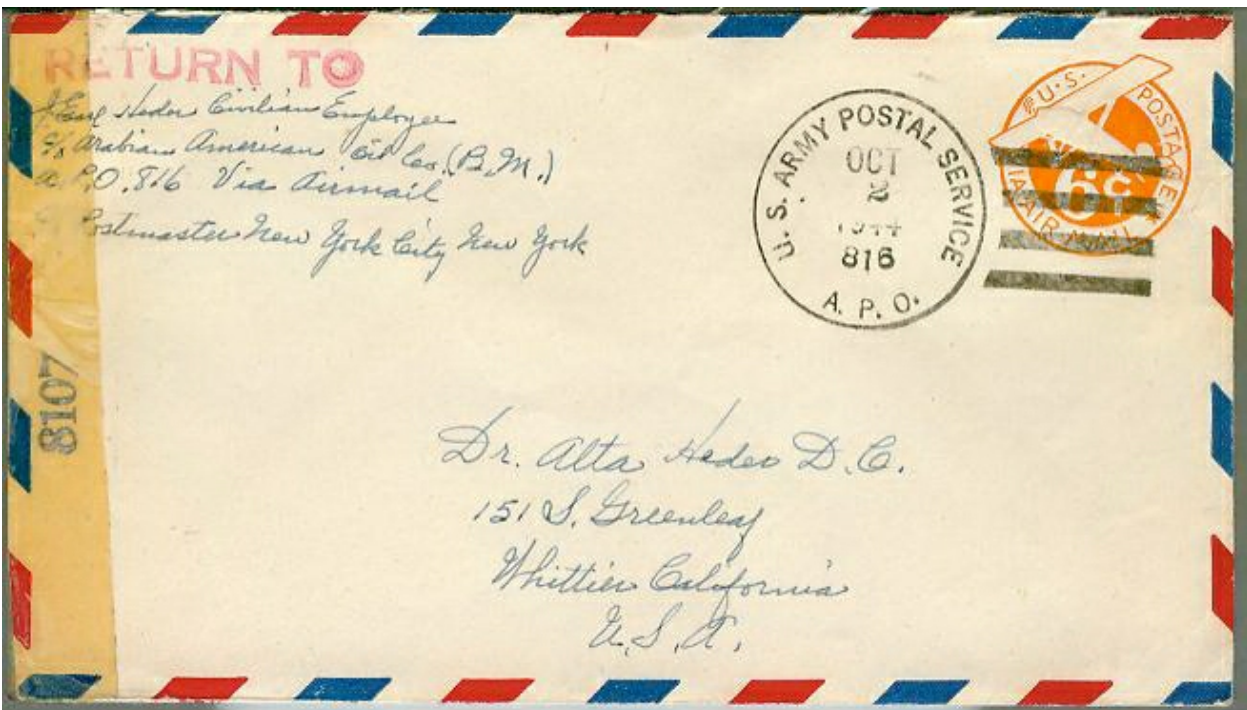 RETURN TO
J Earl Heder Civilian Employee
c/o Arabian American Oil Co. (B.M.)
A.P.O. 816 Via Airmail
Postmaster New York City New York
U. S. ARMY POSTAL SERVICE
OCT
2
1944
816
A. P. O.
U.S. POSTAGE
6¢
VIA AIR MAIL
8107
Dr. Alta Heder D.C.
151 S. Greenleaf
Whittier California
U.S.A.